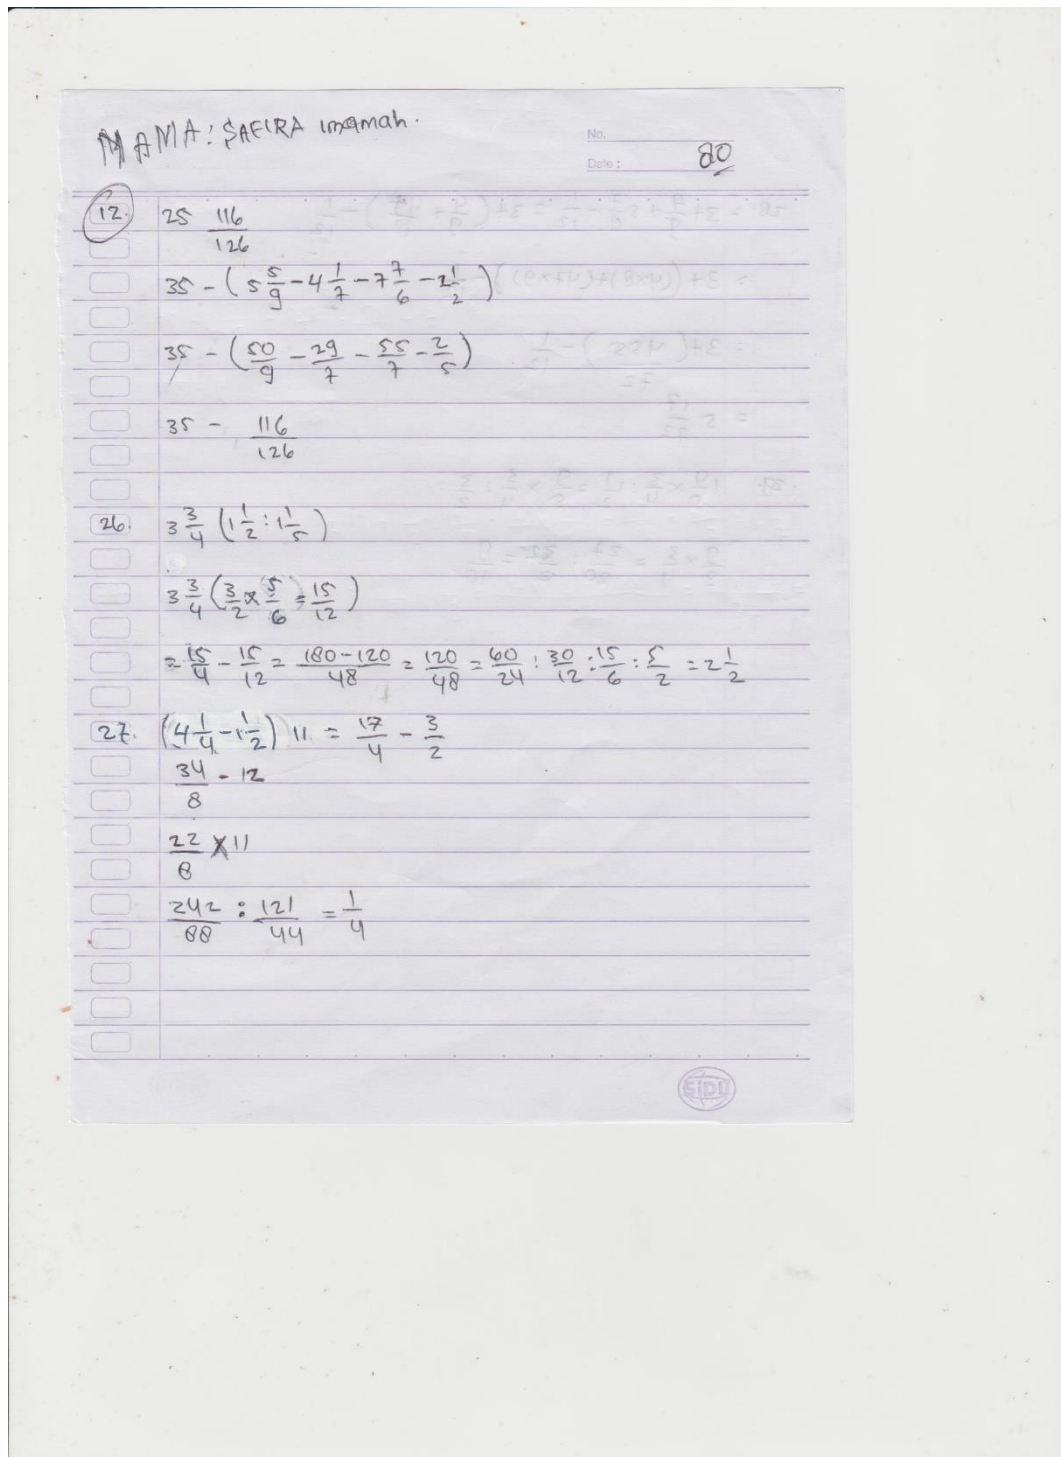 MAMA: SAFIRA imamah.
No.
Date: 80
12. 25 116/126
35 - (5 5/9 - 4 1/7 - 7 7/6 - 2 1/2)
35 - (50/9 - 29/7 - 55/7 - 2/5)
35 - 116/126
26. 3 3/4 (1 1/2 : 1 1/5)
3 3/4 (3/2 x 5/6 = 15/12)
= 15/4 - 15/12 = 180-120/48 = 120/48 = 60/24 : 30/12 : 15/6 : 5/2 = 2 1/2
27. (4 1/4 - 1 1/2) 11 = 17/4 - 3/2
34/8 - 12
22/8 x 11
242/88 : 121/44 = 1/4
SIDU